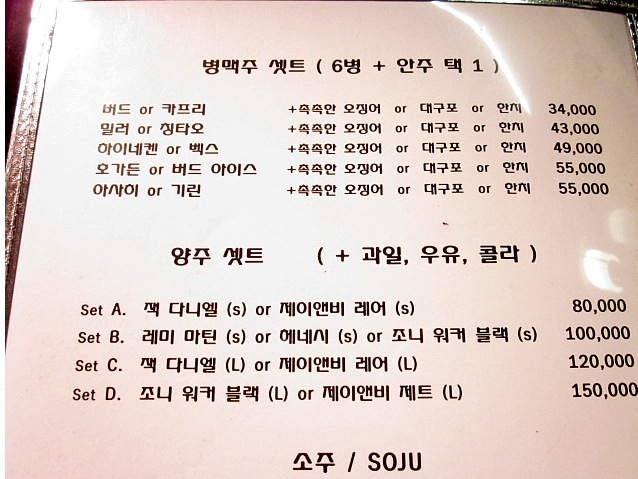 병맥주 셋트 ( 6병 + 안주 택 1 )
버드 or 카프리 +촉촉한 오징어 or 대구포 or 한치 34,000
밀러 or 칭타오 +촉촉한 오징어 or 대구포 or 한치 43,000
하이네켄 or 벡스 +촉촉한 오징어 or 대구포 or 한치 49,000
호가든 or 버드 아이스 +촉촉한 오징어 or 대구포 or 한치 55,000
아사히 or 기린 +촉촉한 오징어 or 대구포 or 한치 55,000
양주 셋트 ( + 과일, 우유, 콜라 )
Set A. 잭 다니엘 (s) or 제이앤비 레어 (s) 80,000
Set B. 레미 마틴 (s) or 헤네시 (s) or 조니 워커 블랙 (s) 100,000
Set C. 잭 다니엘 (L) or 제이앤비 레어 (L) 120,000
Set D. 조니 워커 블랙 (L) or 제이앤비 제트 (L) 150,000
소주 / SOJU